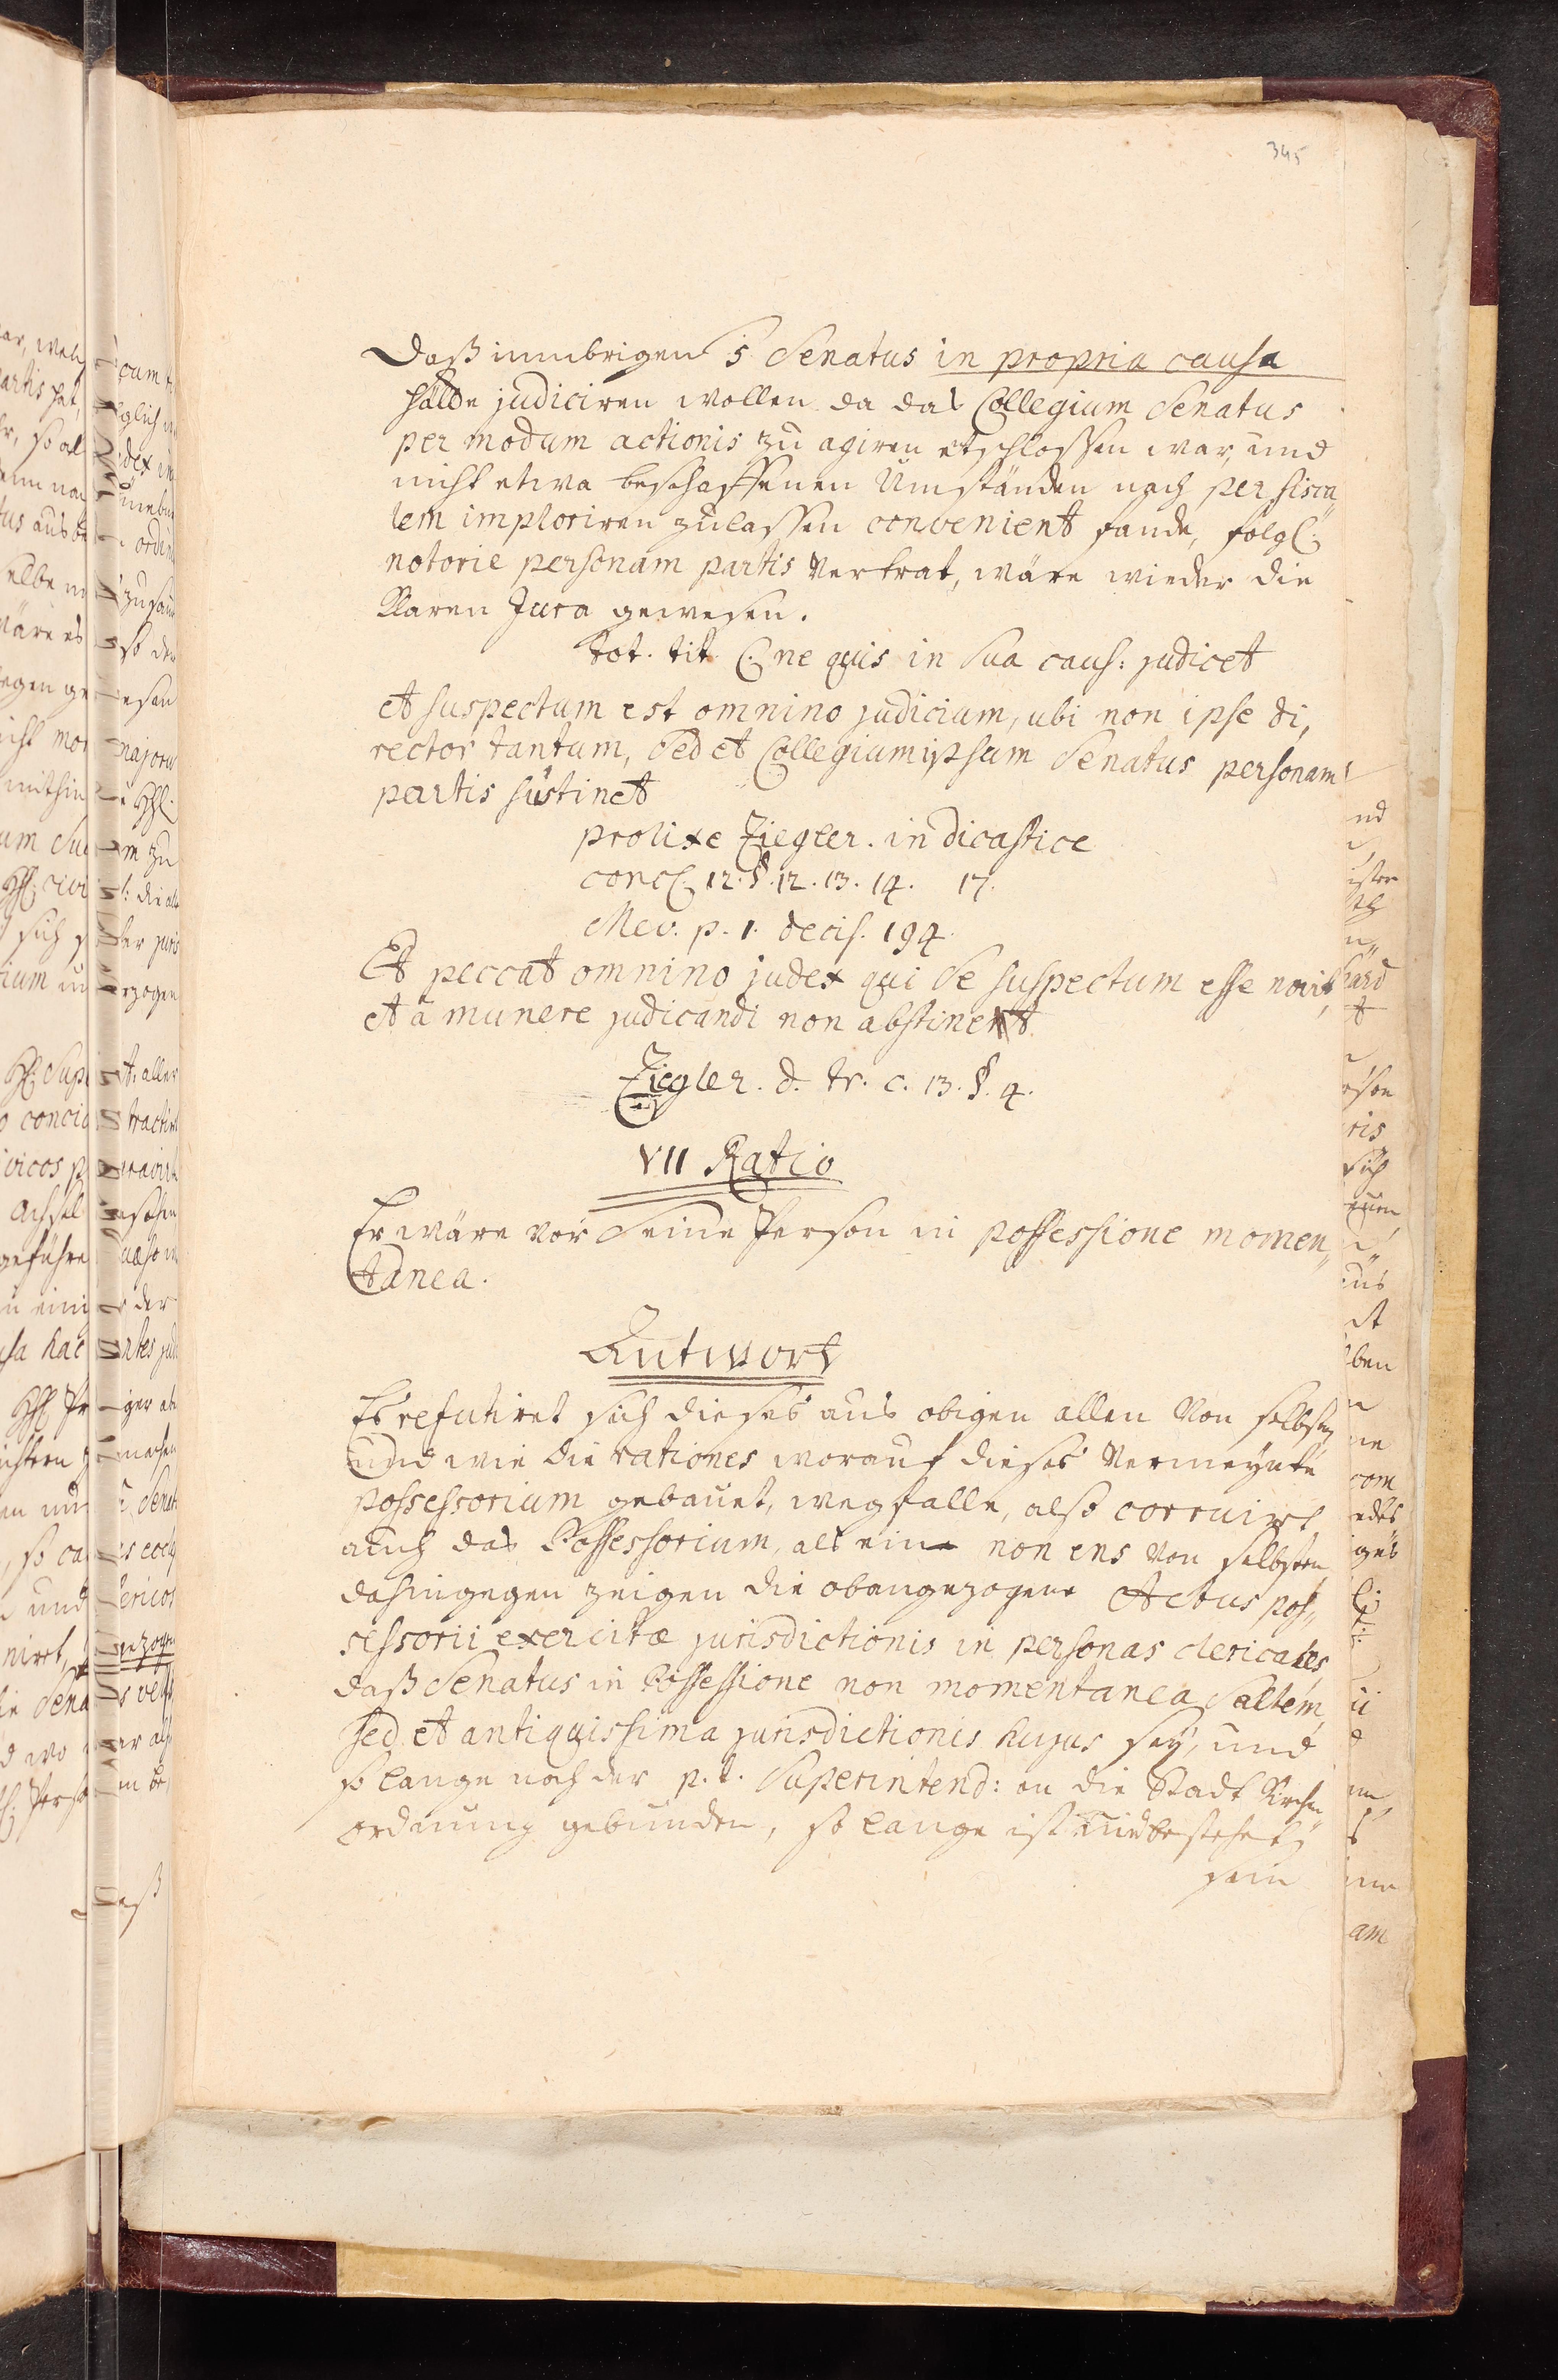 345
Daß im übrigen 5 Senatus in propria causa
hätte judiciren wollen da das Collegium Senatus
per modum actionis zu agiren etschlossen war, und
nicht etwa beschaffenen Umständen nach per fisca„
lem imploriren zulassen convenient fande, folgl:
notorie personam partis vertrat, wäre wieder die
klaren Jura gewesen.
tot. tit. C. ne quis in sua caus: judicet
et suspectum est omnino judicium, ubi non ipse di,
rector tantum, sed et Collegium ipsum Senatus personam
partis sustinet
prolixe Ziegler. in dicastice
concl. 12. §. 12. 13. 14. 17.
Mev. p. 1. decis. 194.
Et peccat omnino judex qui se suspectum esse novit,
et a munere judicandi non abstinet.
Ziegler. d. tr. c. 13. §. 4.
VII Ratio
Er wäre vor seine Person in possessione momen„
tanea.
Antwort
Es refutiret sich dieses aus obigen allen von selbsten
und wie die rationes worauf dieses vermeynte
possessorium gebauet, wegfalle, also corruirt
auch das Possessorium, als ein non ens von selbsten
dahingegen zeigen die obangezogene Actus pos„
sessorii exercitæ jurisdictionis in personas clericales,
daß Senatus in Possessione non momentanea saltem,
sed et antiquissima jurisdictionis hujus sey, und
so lange noch der p. t. Superintend: an die Stadt Kirchen„
ordnung gebunden, so lange ist und bestehet
sein